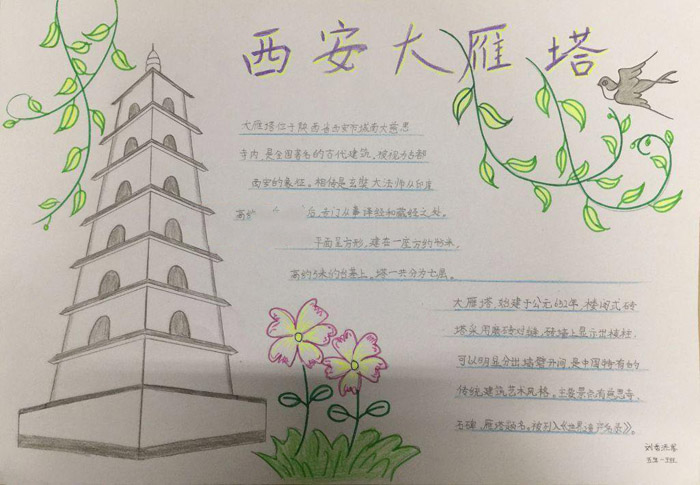 西安大雁塔
大雁塔位于陕西省西安市城南大慈恩
寺内,是全国著名的古代建筑,被视为古都
西安的象征。相传是玄奘大法师从印度
高约 后专门从事译经和藏经之处。
平面呈方形,建在一座方约
高约5米的台基上。塔一共分为七层。
大雁塔,始建于公元652年,楼阁式砖
塔采用磨砖对缝,砖墙上显示出棱柱,
可以明显分出墙壁开间,是中国特有的
传统建筑艺术风格。主要景点有慈恩寺,
石碑,雁塔题名。被列入《世界遗产名录》。